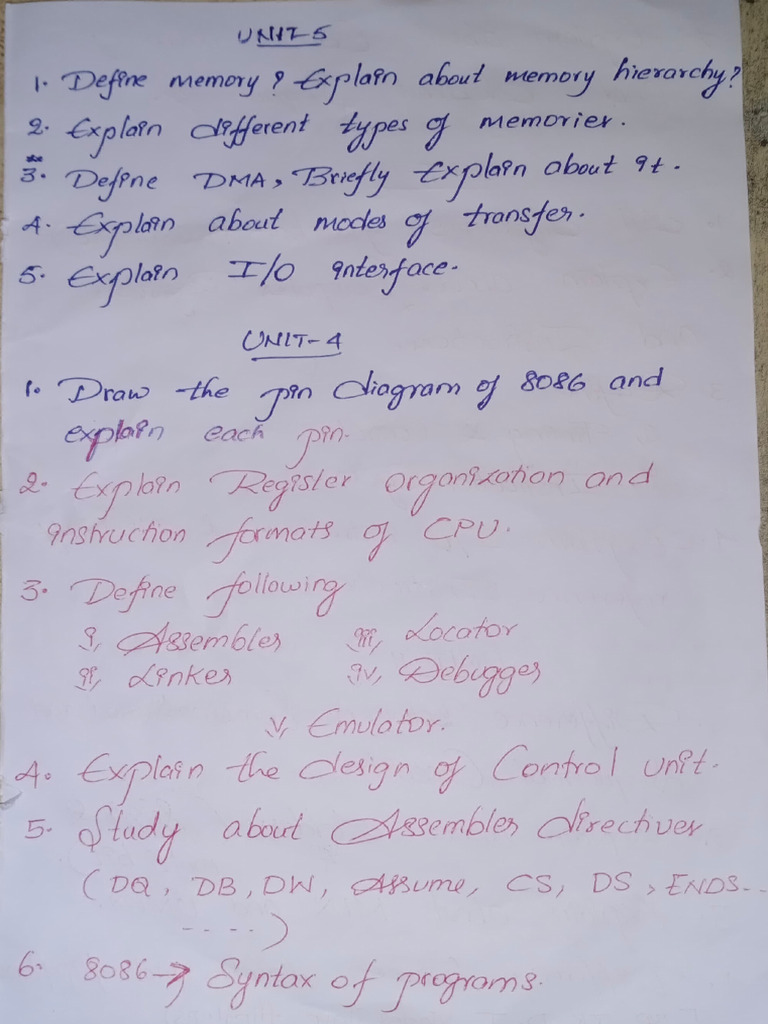 UNIT-5
1. Define memory? Explain about memory hierarchy?
2. Explain different types of memories.
3. Define DMA, Briefly Explain about it.
4. Explain about modes of transfer.
5. Explain I/O interface.
UNIT-4
1. Draw the pin diagram of 8086 and
explain each pin.
2. Explain Register organization and
instruction formats of CPU.
3. Define following
i, Assembler iii, Locator
ii, Linker iv, Debugger
v, Emulator.
4. Explain the design of Control unit.
5. Study about Assembler directives
(DQ, DB, DW, Assume, CS, DS, ENDS...
----)
6. 8086 → Syntax of programs.